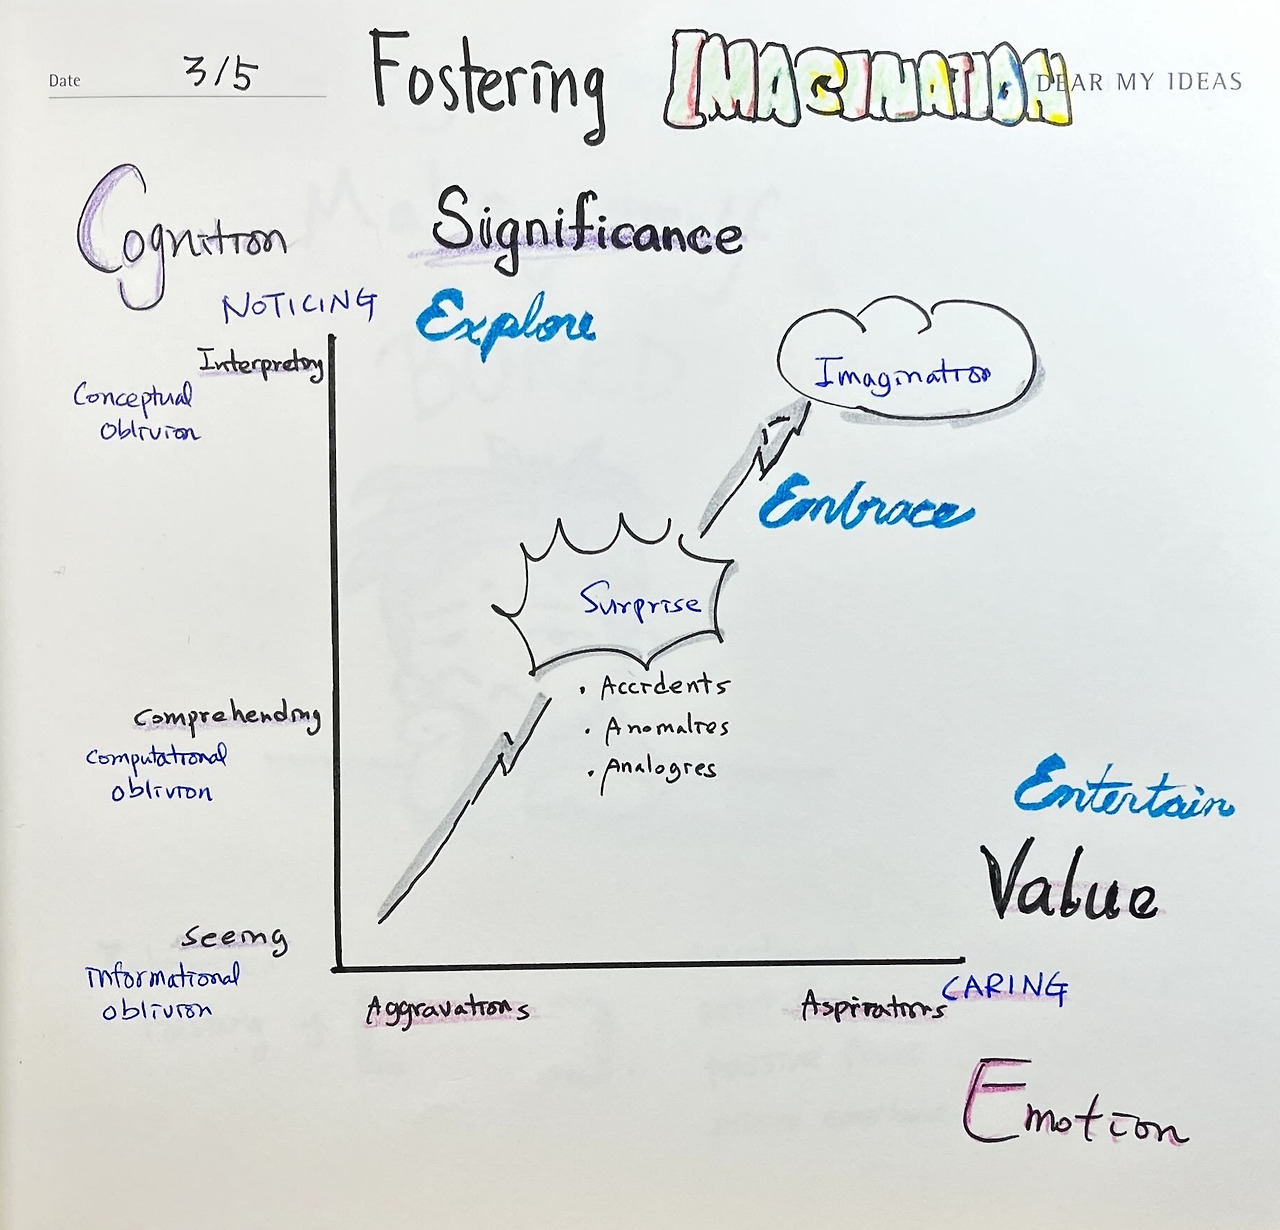 Date 3/5
Fostering IMAGINATION
DEAR MY IDEAS
Cognition
Significance
NOTICING
Explore
Interpreting
Conceptual
oblivion
Imagination
Embrace
Surprise
• Accidents
• Anomalies
• Analogies
Comprehending
Computational
oblivion
Entertain
Value
Seeing
Informational
oblivion
Aggravations
Aspirations
CARING
Emotion